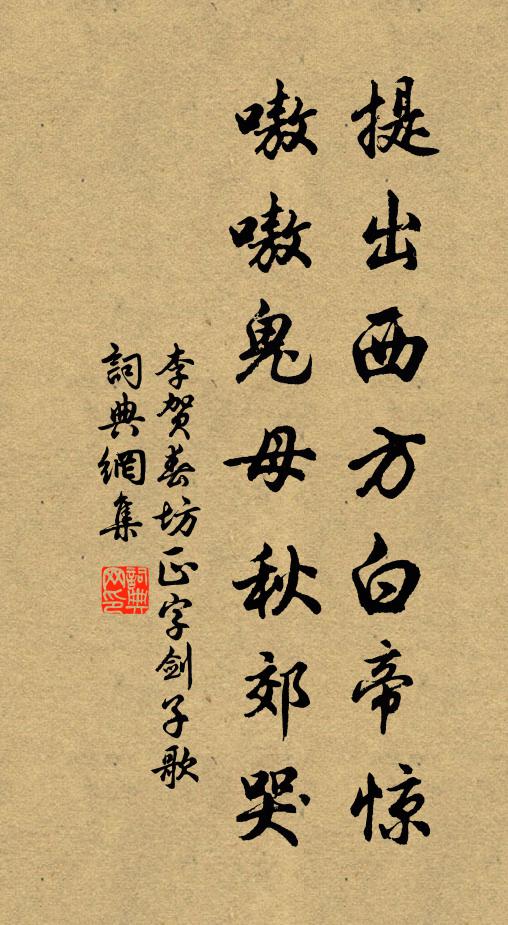 提出西方白帝惊
嗷嗷鬼母秋郊哭
李贺春坊正字剑子歌
詞典網集
詞典网印